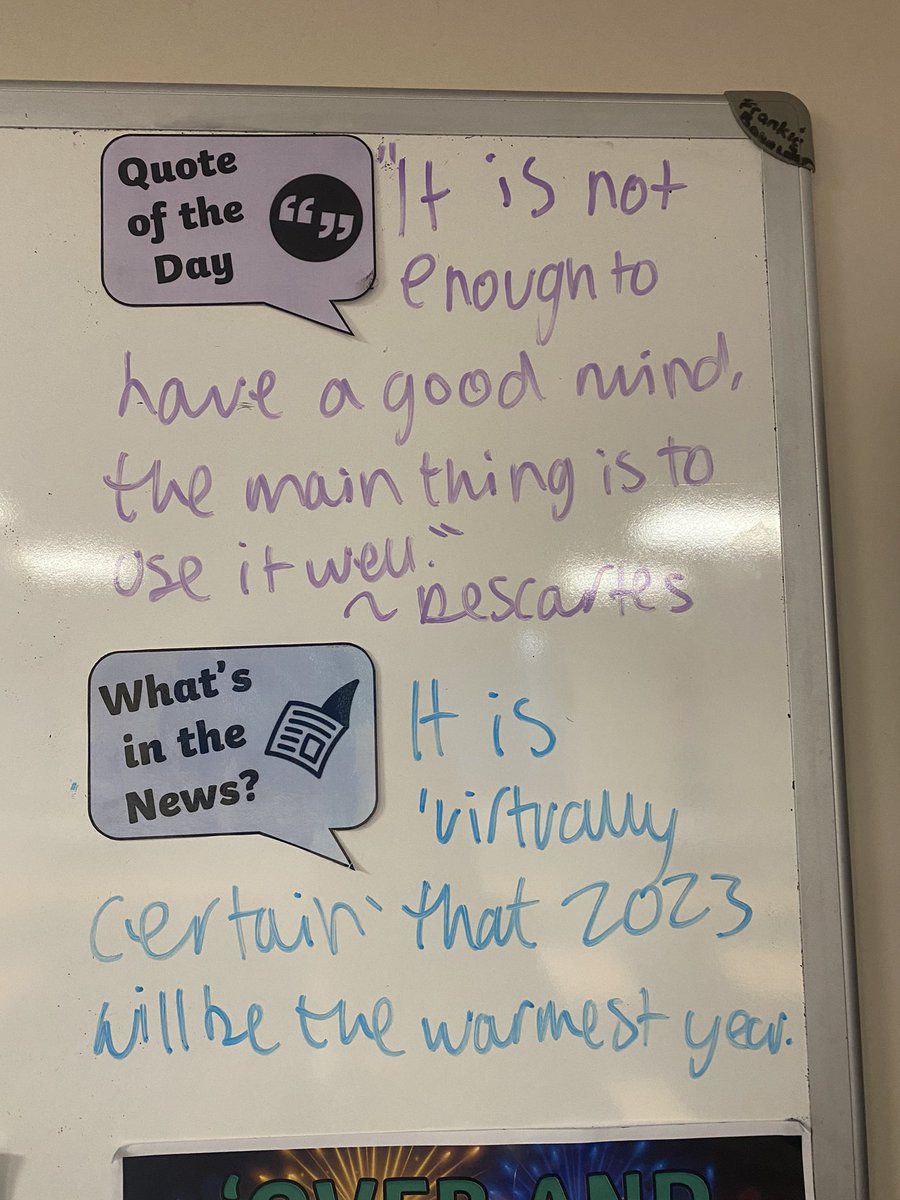 Quote
of the
Day
"It is not
enough to
have a good mind,
the main thing is to
use it well."
~ Descartes
What's
in the
News?
It is
'virtually
certain' that 2023
will be the warmest year.
'OVER AND